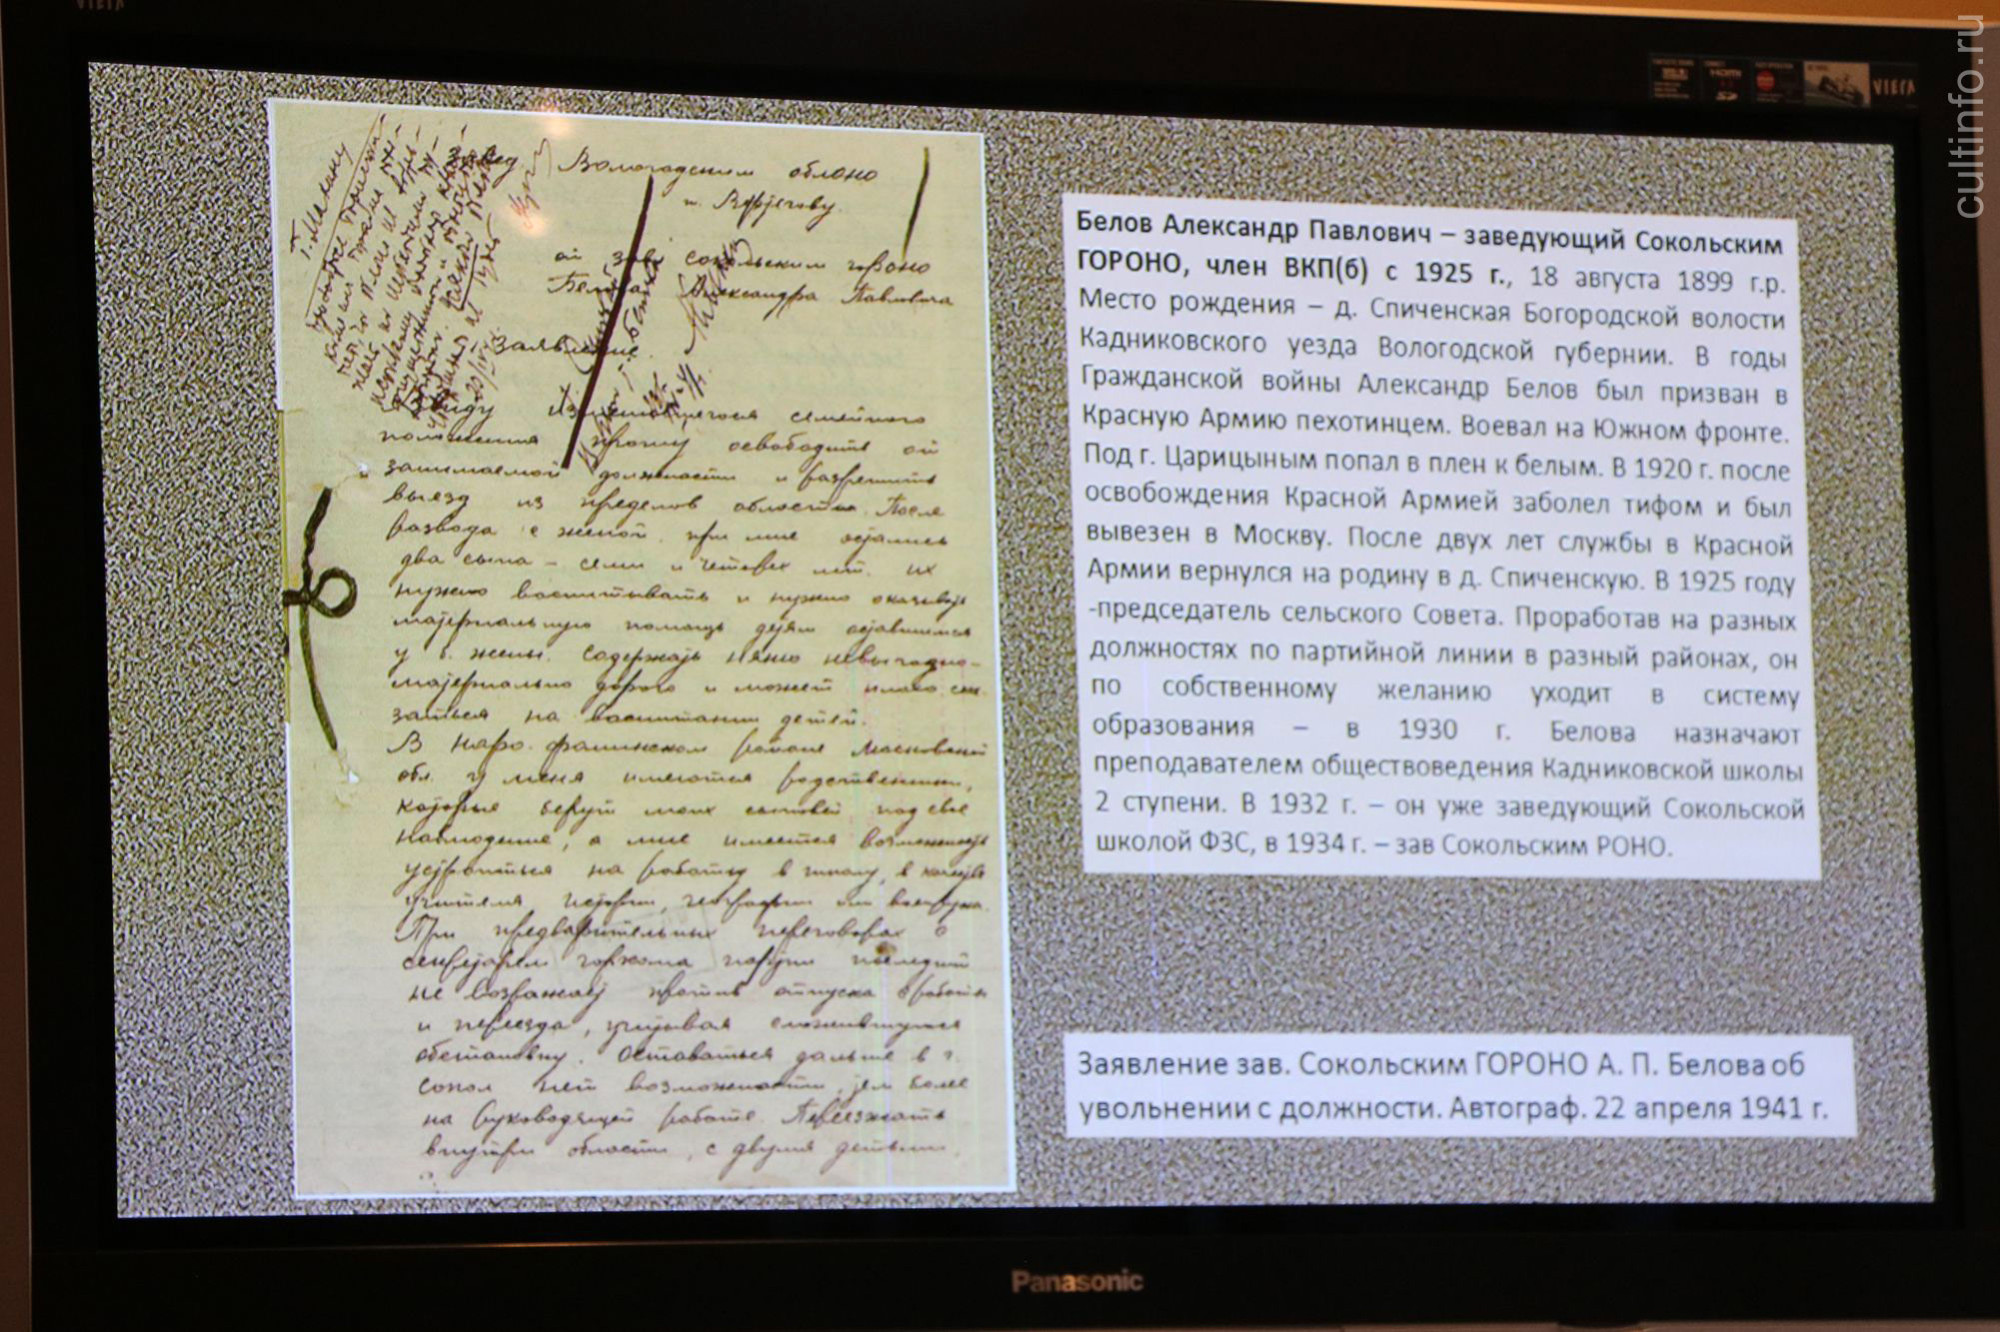 Вологодским облоно
от зав. сокольским гороно
Белова Александра Павловича
Заявление.
Ввиду изменившегося семейного
положения прошу освободить от
занимаемой должности и разрешить
выезд из пределов области. После
развода с женой при мне остались
два сына – семи и четырех лет. их
нужно воспитывать и нужно оказывать
материальную помощь детям оставшимся
у б. жены. Содержать няню невыгодно-
материально дорого и может плохо ска-
заться на воспитании детей.
В Наро-фоминском районе Московской
обл. у меня имеются родственники,
которые берут моих сыновей под свое
наблюдение, а мне имеется возможность
устроиться на работу в школу, в качестве
учителя истории, географии или
При предварительных переговорах с
секретарем горкома партии последний
не возражает против отпуска с работы
и переезда, учитывая сложившуюся
обстановку. Оставаться дальше в г.
Сокол нет возможности, тем более
на руководящей работе. Переезжать
внутри области, с двумя детьми,
Белов Александр Павлович – заведующий Сокольским
ГОРОНО, член ВКП(б) с 1925 г., 18 августа 1899 г.р.
Место рождения – д. Спиченская Богородской волости
Кадниковского уезда Вологодской губернии. В годы
Гражданской войны Александр Белов был призван в
Красную Армию пехотинцем. Воевал на Южном фронте.
Под г. Царицыным попал в плен к белым. В 1920 г. после
освобождения Красной Армией заболел тифом и был
вывезен в Москву. После двух лет службы в Красной
Армии вернулся на родину в д. Спиченскую. В 1925 году
-председатель сельского Совета. Проработав на разных
должностях по партийной линии в разный районах, он
по собственному желанию уходит в систему
образования – в 1930 г. Белова назначают
преподавателем обществоведения Кадниковской школы
2 ступени. В 1932 г. – он уже заведующий Сокольской
школой ФЗС, в 1934 г. – зав Сокольским РОНО.
Заявление зав. Сокольским ГОРОНО А. П. Белова об
увольнении с должности. Автограф. 22 апреля 1941 г.
Panasonic
VIERA
HDMI
cultinfo.ru